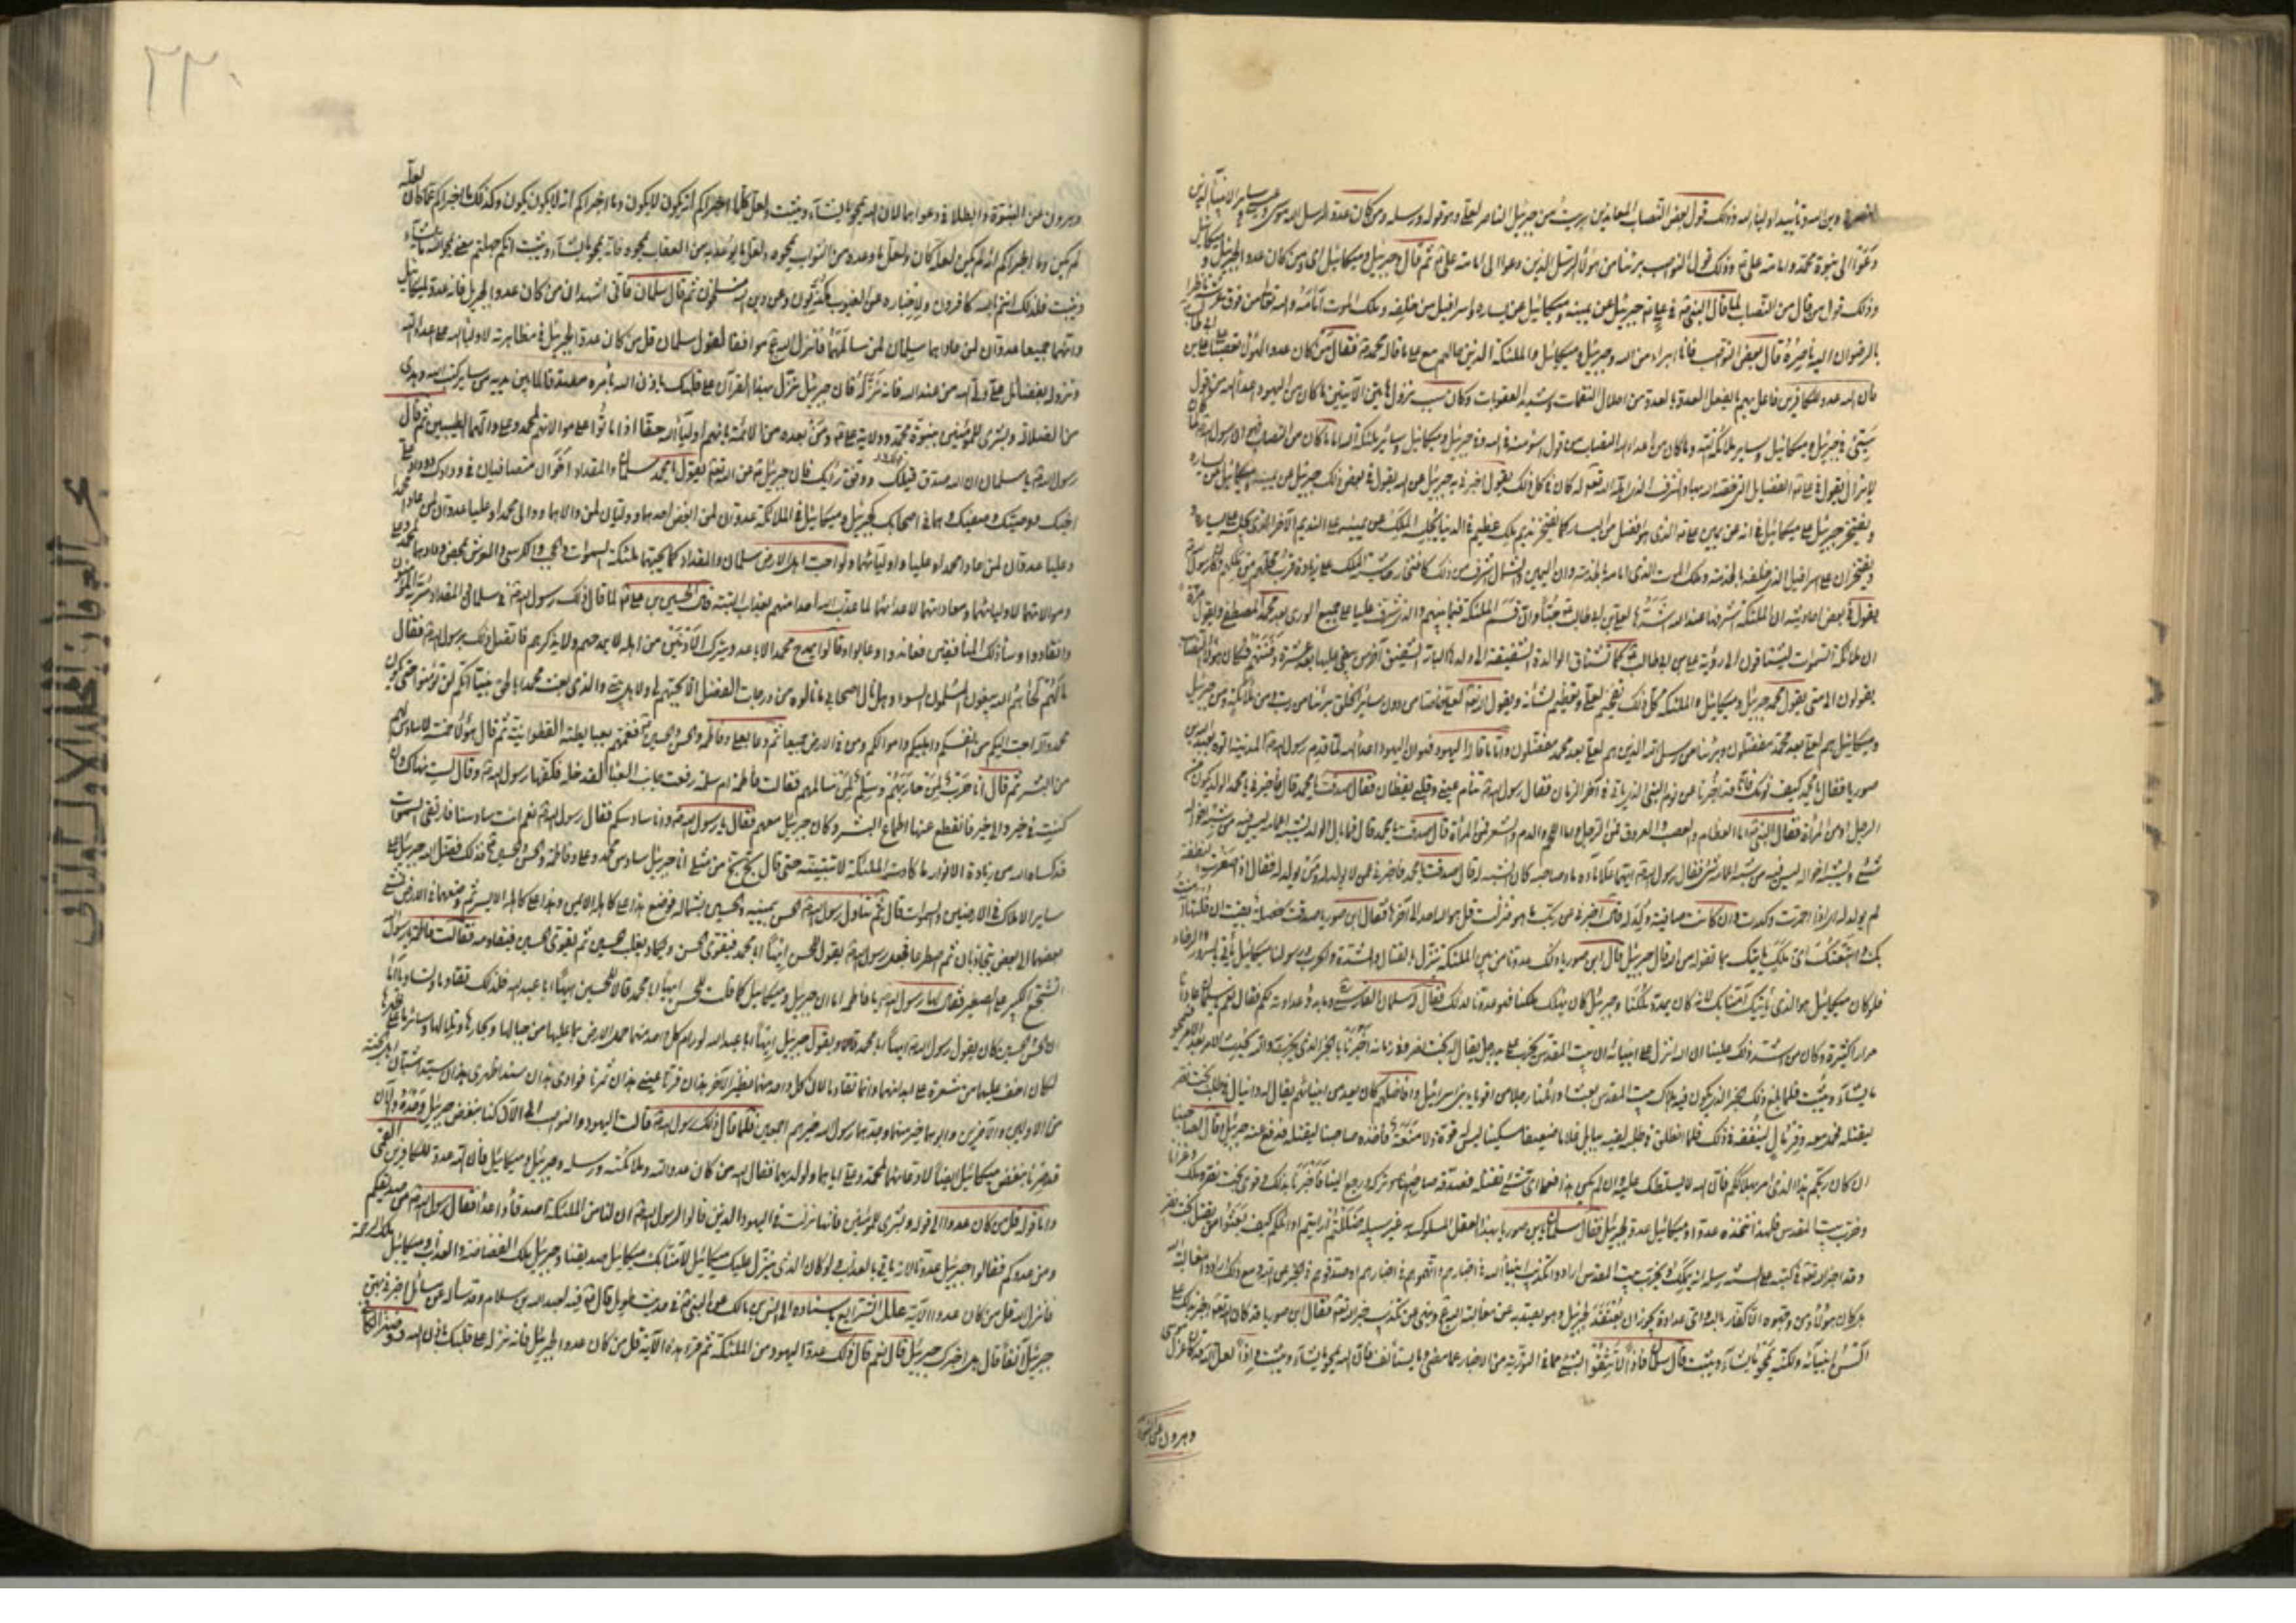 وبين الله وتأييد اولياء الله وذلك قول بعض النصاب المعاندين برئت من جبرئيل الناصر لعلي وهو قوله ورسله ومن كان عدوا لرسل الله موسى وعيسى وساير الانبياء الذين
دعوا الى نبوة محمد وامامة علي وذلك قول النواصب برئنا من هؤلاء الرسل الذين دعوا الى امامة علي ثم قال وجبريل وميكائيل اى ومن كان عدوا لجبرئيل وميكائيل
وذلك قول من قال من النصاب لما قال النبي في علي جبرئيل عن يمينه وميكائيل عن يساره واسرافيل من خلفه وملك الموت امامه والله تعالى من فوق عرشه ناظر
بالرضوان اليه ناصره قال بعض النواصب فانا ابرء من الله وجبرئيل وميكائيل والملئكة الذين حالهم مع علي ما قاله محمد فقال من كان عدوا لهؤلاء تعصبا على علي بن ابي طالب
فان الله عدو للكافرين فاعل بهم ما يفعل العدو بالعدو من احلال النقمات وتشديد العقوبات وكان سبب نزول هاتين الآيتين ما كان من اليهود اعداء الله من قول
سيئ في جبرئيل وميكائيل وساير ملائكة الله وما كان من اعداء الله النصاب من قول اسوء منه في الله وفي جبرئيل وميكائيل وساير ملئكة الله اما ما كان من النصاب فهو ان رسول الله لما كان
لا يزال يقول في علي الفضايل التي خصه الله بها والشرف الذي اهله الله تعالى له كان في كل ذلك يقول اخبرني به جبرئيل عن الله ويقول في بعض ذلك جبرئيل عن يمينه وميكائيل عن يساره
ويفتخر جبرئيل على ميكائيل في انه عن يمين علي الذي هو افضل من اليسار كما يفتخر نديم ملك عظيم في الدنيا يجلسه الملك عن يمينه على النديم الآخر الذي يجلسه على يساره
ويفتخران على اسرافيل الذي خلفه بالخدمة وملك الموت الذي امامه بالخدمة وان اليمين والشمال اشرف من ذلك كافتخار حاشية الملك على زيادة قرب محلهم من ملكهم وكان رسول الله
يقول في بعض احاديثه ان الملئكة اشرفها عند الله اشدها لعلي بن ابي طالب حبا وان قسم الملئكة فيما بينهم والذي شرف عليا على جميع الورى بعد محمد المصطفى ويقول مرة
ان ملائكة السموات ليشتاقون الى رؤية علي بن ابي طالب كما تشتاق الوالدة الشفيقة الى ولدها البار الشفيق آخر من بقي عليها بعد عشرة دفنتهم فكان هؤلاء النصاب
يقولون الى متى يقول محمد جبرئيل وميكائيل والملئكة كل ذلك تفخيم لعلي وتعظيم لشأنه ويقول الله تعالى لعلي خاصا من دون ساير الخلق برئنا من رب ومن ملائكة ومن جبرئيل
وميكائيل هم لعلي بعد محمد مفضلون وبرئنا من رسل الله الذين هم لعلي بعد محمد مفضلون واما ما قاله اليهود فهو ان اليهود اعداء الله لما قدم رسول الله المدينة اتوه بعبد الله بن
صوريا فقال يا محمد كيف نومك فانا قد اخبرنا عن نوم النبي الذي ياتي في آخر الزمان فقال رسول الله تنام عيني وقلبي يقظان قال صدقت يا محمد قال فاخبرني يا محمد الولد يكون من
الرجل او من المراة فقال النبي اما العظام والعصب والعروق فمن الرجل واما اللحم والدم والشعر فمن المراة قال صدقت يا محمد قال فما بال الولد يشبه اعمامه ليس فيه من شبه اخواله
شيء ويشبه اخواله ليس فيه من شبه اعمامه شيء فقال رسول الله ايهما علا ماؤه ماء صاحبه كان الشبه له قال صدقت يا محمد فاخبرني عمن لا يولد له ومن يولد له فقال اذا اصفرت النطفة
لم يولد له اي اذا احمرت وكدرت واذا كانت صافية ولد له قال اخبرني عن ربك ما هو فنزلت قل هو الله احد الى آخرها فقال ابن صوريا صدقت خصلة بقيت ان قلتها آمنت
بك واتبعتك اى ملك ياتيك بما تقوله عن الله قال جبرئيل قال ابن صوريا ذلك عدونا من بين الملئكة ينزل بالقتال والشدة والحرب ورسولنا ميكائيل ياتي بالسرور والرخاء
فلو كان ميكائيل هو الذي ياتيك آمنا بك لانه كان يشدد ملكنا وجبرئيل كان يهلك ملكنا فهو عدونا لذلك فقال له سلمان الفارسي وما بدو عداوته لكم قال نعم يا سلمان عادانا
مرارا كثيرة وكان من اشد ذلك علينا ان الله انزل على انبيائه ان بيت المقدس يخرب على يد رجل يقال له بخت نصر وفي زمانه اخبرنا بالحين الذي يخرب فيه والله يحدث الامر بعد الامر فيمحو
ما يشاء ويثبت فلما بلغ ذلك الحين الذي يكون فيه هلاك بيت المقدس بعث اوائلنا رجلا من اقوياء بني اسرائيل وافاضلهم كان يعد من انبيائهم يقال له دانيال في طلب بخت نصر
ليقتله فحمل معه وقر مال لينفقه في ذلك فلما انطلق في طلبه لقيه ببابل غلاما ضعيفا مسكينا ليس له قوة ولا منعة فاخذه صاحبنا ليقتله فدفع عنه جبرئيل وقال لصاحبنا
ان كان ربكم هذا الذي امر بهلاككم فان الله لا يسلطك عليه وان لم يكن هذا فعلى اى شيء تقتله فصدقه صاحبنا وتركه ورجع الينا فاخبرنا بذلك وقوى بخت نصر وملك وغزانا
وخرب بيت المقدس فلهذا نتخذه عدوا وميكائيل عدو لجبرئيل فقال سلمان يا بن صوريا بهذا العقل المسلوك به غير سبيله ضللتم ارايتم اوائلكم كيف بعثوا من يقتل بخت نصر
وقد اخبر الله تعالى في كتبه على السنة رسله انه يملك ويخرب بيت المقدس ارادوا تكذيب انبياء الله في اخبارهم او اتهموهم في اخبارهم او صدقوهم في الخبر عن الله ومع ذلك ارادوا مغالبة الله
هل كان هؤلاء ومن وجهوه الا كفارا بالله واي عداوة يجوز ان يعتقد لجبرئيل وهو يصد به عن مغالبة الله وينهى عن تكذيب خبر الله تعالى فقال ابن صوريا قد كان الله تعالى اخبر بذلك على
السن انبيائه ولكنه يمحو ما يشاء ويثبت قال سلمان فاذا لا تتيقنوا بشيء مما في التورية من الاخبار عما مضى وما يستأنف فان الله يمحو ما يشاء ويثبت واذا لعل الله قد كان عزل موسى
وهرون عن النبوة
٢٣٠
وهرون عن النبوة وابطلا في دعواهما لان الله يمحو ما يشاء ويثبت ولعل كل ما اخبراكم انه يكون لا يكون وما اخبراكم انه لا يكون يكون وكذلك ما اخبراكم عما كان لعله
لم يكن وما اخبراكم انه لم يكن لعله كان ولعل ما وعده من الثواب يمحوه ولعل ما توعد به من العقاب يمحوه فانه يمحو ما يشاء ويثبت انكم جهلتم معنى يمحو الله ما يشاء
ويثبت فلذلك انتم بالله كافرون ولاخباره عن الغيوب مكذبون وعن دين الله منسلخون ثم قال سلمان فاني اشهد ان من كان عدوا لجبريل فانه عدو لميكائيل
وانهما جميعا عدوان لمن عاداهما سلمان لمن سالمهما فانزل الله عز وجل موافقا لقول سلمان قل من كان عدوا لجبريل في مظاهرته لاولياء الله على اعداء الله
ونزوله بفضائل علي ولي الله من عند الله فانه نزله فان جبريل نزل بهذا القرآن على قلبك باذن الله بامره مصدقا لما بين يديه من ساير كتب الله وهدى
من الضلالة وبشرى للمؤمنين بنبوة محمد وولاية علي ومن بعده من الائمة بانهم اولياء الله حقا اذا ماتوا على موالاتهم لمحمد وعلي وآلهما الطيبين ثم قال
رسول الله يا سلمان ان الله صدق قيلك ووفق رايك فان جبرئيل عن الله تعالى يقول يا محمد سلمان والمقداد اخوان متصافيان في ودادك ووداد علي
اخيك ووصيك وصفيك وهما في اصحابك كجبرئيل وميكائيل في الملائكة عدوان لمن ابغض احدهما ووليان لمن والاهما ووالى محمدا وعليا عدوان لمن عادا محمدا
وعليا عدوان لمن عادا محمدا وعليا واولياءهما ولو احب اهل الارض سلمان والمقداد كما يحبهما ملئكة السموات والحجب والكرسي والعرش لمحض ودادهما لمحمد وعلي
وموالاتهما لاوليائهما ومعاداتهما لاعدائهما لما عذب الله احدا منهم بعذاب البتة قال الحسن بن علي لما قال ذلك رسول الله في سلمان والمقداد سر به المؤمنون
وانقادوا وساء ذلك المنافقين فعاندوا وعابوا وقالوا يمدح محمد الاباعد ويترك الادنين من اهله لا يمدحهم ولا يذكرهم فاتصل ذلك برسول الله فقال
ما لهم لحاهم الله يبغون للمسلمين السوء وهل نال اصحابي ما نالوه من درجات الفضل الا بحبهم لي ولاهل بيتي والذي بعث محمدا بالحق نبيا انكم لن تؤمنوا حتى يكون
محمد وآله احب اليكم من انفسكم واهليكم واموالكم ومن في الارض جميعا ثم دعا بعلي وفاطمة والحسن والحسين فغمتهم بعباءته القطوانية ثم قال هؤلاء خمسة لا سادس لهم
من البشر ثم قال انا حرب لمن حاربهم وسلم لمن سالمهم فقالت فاطمة ام سلمة رفعت جانب العباء لتدخله فكفها رسول الله وقال لست هناك وان
كنت في خير والى خير فانقطع عنها اطماع البشر وكان جبرئيل معهم فقال يا رسول الله وانا سادسكم فقال رسول الله نعم انت سادسنا فارتقى السموات
قد كساه الله من زيادة الانوار ما كادت الملئكة لا تبينه حتى قال بخ بخ من مثلي انا جبرئيل سادس محمد وعلي وفاطمة والحسن والحسين فذلك فضل الله جبرئيل على
ساير الاملاك في الارضين والسموات قال ثم تناول رسول الله الحسن بيمينه والحسين بشماله فوضع هذا على كاهله الايمن وهذا على كاهله الايسر ثم وضعهما في الارض فمشى
بعضهما الى بعض يتجاذبان ثم اصطرعا فجعل رسول الله يقول للحسن ايها ابا محمد فيقوى الحسن ويكاد يغلب الحسين ثم يقوى الحسين فيقاومه فقالت فاطمة يا رسول الله
اتشجع الكبير على الصغير فقال لها رسول الله يا فاطمة اما ان جبرئيل وميكائيل كلما قلت للحسن ايها ابا محمد قالا للحسين ايها ابا عبد الله فلذلك تقاوما وتساويا اما
ان الحسن والحسين كان يقول رسول الله ايها ابا محمد ويقول جبرئيل ايها ابا عبد الله لو رام كل واحد منهما حمل الارض بما عليها من جبالها وبحارها وتلالها وساير ما على ظهرها
لكان اخف عليهما من شعرة على ابدانهما وانما تقاوما لان كل واحد منهما نظير الآخر هذان قرتا عيني هذان ثمرتا فؤادي هذان سندا ظهري هذان سيدا شباب اهل الجنة
من الاولين والآخرين وابوهما خير منهما وجدهما رسول الله خيرهم اجمعين فلما قال ذلك رسول الله قالت اليهود والنواصب الى الآن كنا نبغض جبرئيل وحده والآن
قد صرنا نبغض ميكائيل ايضا لادعائهما لمحمد وعلي اياهما ولولديهما فقال الله من كان عدوا لله وملائكته ورسله وجبريل وميكائيل فان الله عدو للكافرين القمي
واما قوله قل من كان عدوا الى قوله وبشرى للمؤمنين فانها نزلت في اليهود الذين قالوا لرسول الله ان لنا من الملئكة اصدقاء واعداء فقال رسول الله من صديقكم
ومن عدوكم فقالوا جبرئيل عدونا لانه ياتي بالعذاب ولو كان الذي ينزل عليك ميكائيل لآمنا بك فميكائيل صديقنا وجبرئيل ملك الفضاضة والعذاب وميكائيل ملك الرحمة
فانزل الله قل من كان عدوا الآية علل الشرايع باسناده الى انس بن مالك عن النبي في حديث طويل قال فيه لعبد الله بن سلام وقد ساله عن مسائل اخبرني بهن
جبريل آنفا قال هل اخبرك جبرئيل قال نعم قال ذلك عدو اليهود من الملئكة ثم قرا هذه الآية قل من كان عدوا لجبريل فانه نزله على قلبك باذن الله